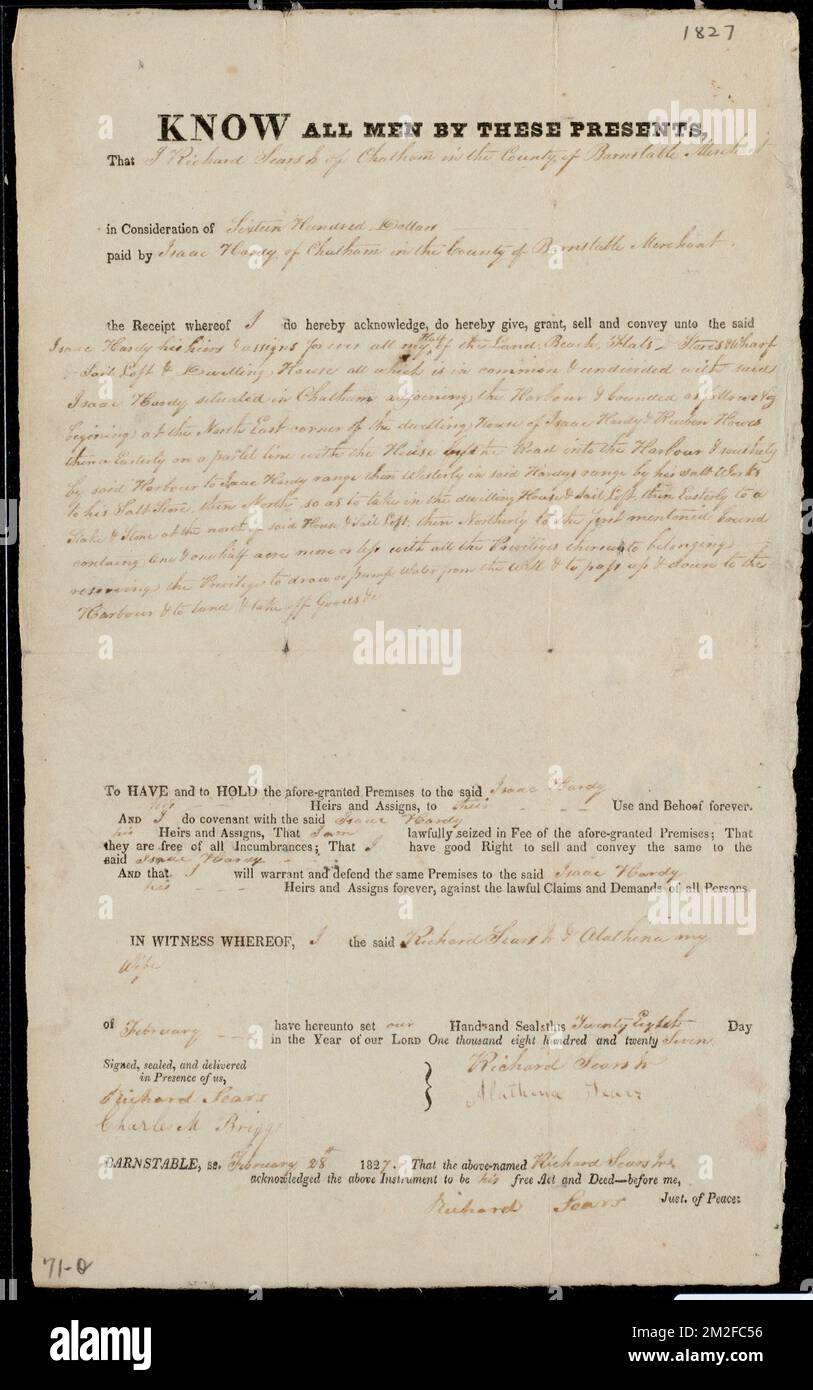 1827
KNOW ALL MEN BY THESE PRESENTS,
That I Richard Sears Jr of Chatham in the County of Barnstable Merchant
in Consideration of Sixteen Hundred Dollars
paid by Isaac Hardy of Chatham in the County of Barnstable Merchant
the Receipt whereof I do hereby acknowledge, do hereby give, grant, sell and convey unto the said
Isaac Hardy his heirs & assigns forever all my Half of the Land, Beach, Flats, Stores & Wharf
& Sail Loft & Dwelling House all which is in common & undivided with said
Isaac Hardy situated in Chatham adjoining the Harbour & bounded as follows
begining at the North East corner of the dwelling House of Isaac Hardy & Reuben Howes
then Easterly on a parlel line with the House by the Road into the Harbour & southerly
by said Harbour to Isaac Hardy range then Westerly in said Hardys range by his Salt Works
to his Salt Store, then North so as to take in the dwelling House & Sail Loft, then Easterly to a
Stake & Stone at the north of said House & Sail Loft, then Northerly to the first mentioned bound
containg one & one half acre more or less with all the Priviliges thereunto belonging
reserving the Privilige to draw or pump Water from the Well & to pass up & down to the
Harbour & to land & take off Goods &c
To HAVE and to HOLD the afore-granted Premises to the said Isaac Hardy
his Heirs and Assigns, to their Use and Behoof forever.
AND I do covenant with the said Isaac Hardy
his Heirs and Assigns, That I am lawfully seized in Fee of the afore-granted Premises; That
they are free of all Incumbrances; That I have good Right to sell and convey the same to the
said Isaac Hardy
AND that I will warrant and defend the same Premises to the said Isaac Hardy
his Heirs and Assigns forever, against the lawful Claims and Demands of all Persons.
IN WITNESS WHEREOF, I the said Richard Sears Jr & Alathena my
Wife
of February have hereunto set our Hands and Seals this Twenty Eighth Day
in the Year of our LORD One thousand eight hundred and twenty Seven
Signed, sealed, and delivered
in Presence of us,
Richard Sears Jr
Alathena Sears
Richard Sears
Charles M Briggs
BARNSTABLE, ss. February 28th 1827. That the above-named Richard Sears Jr
acknowledged the above Instrument to be his free Act and Deed—before me,
Richard Sears Just. of Peace.
71-0
alamy
alamy
Image ID: 2M2FC56
www.alamy.com